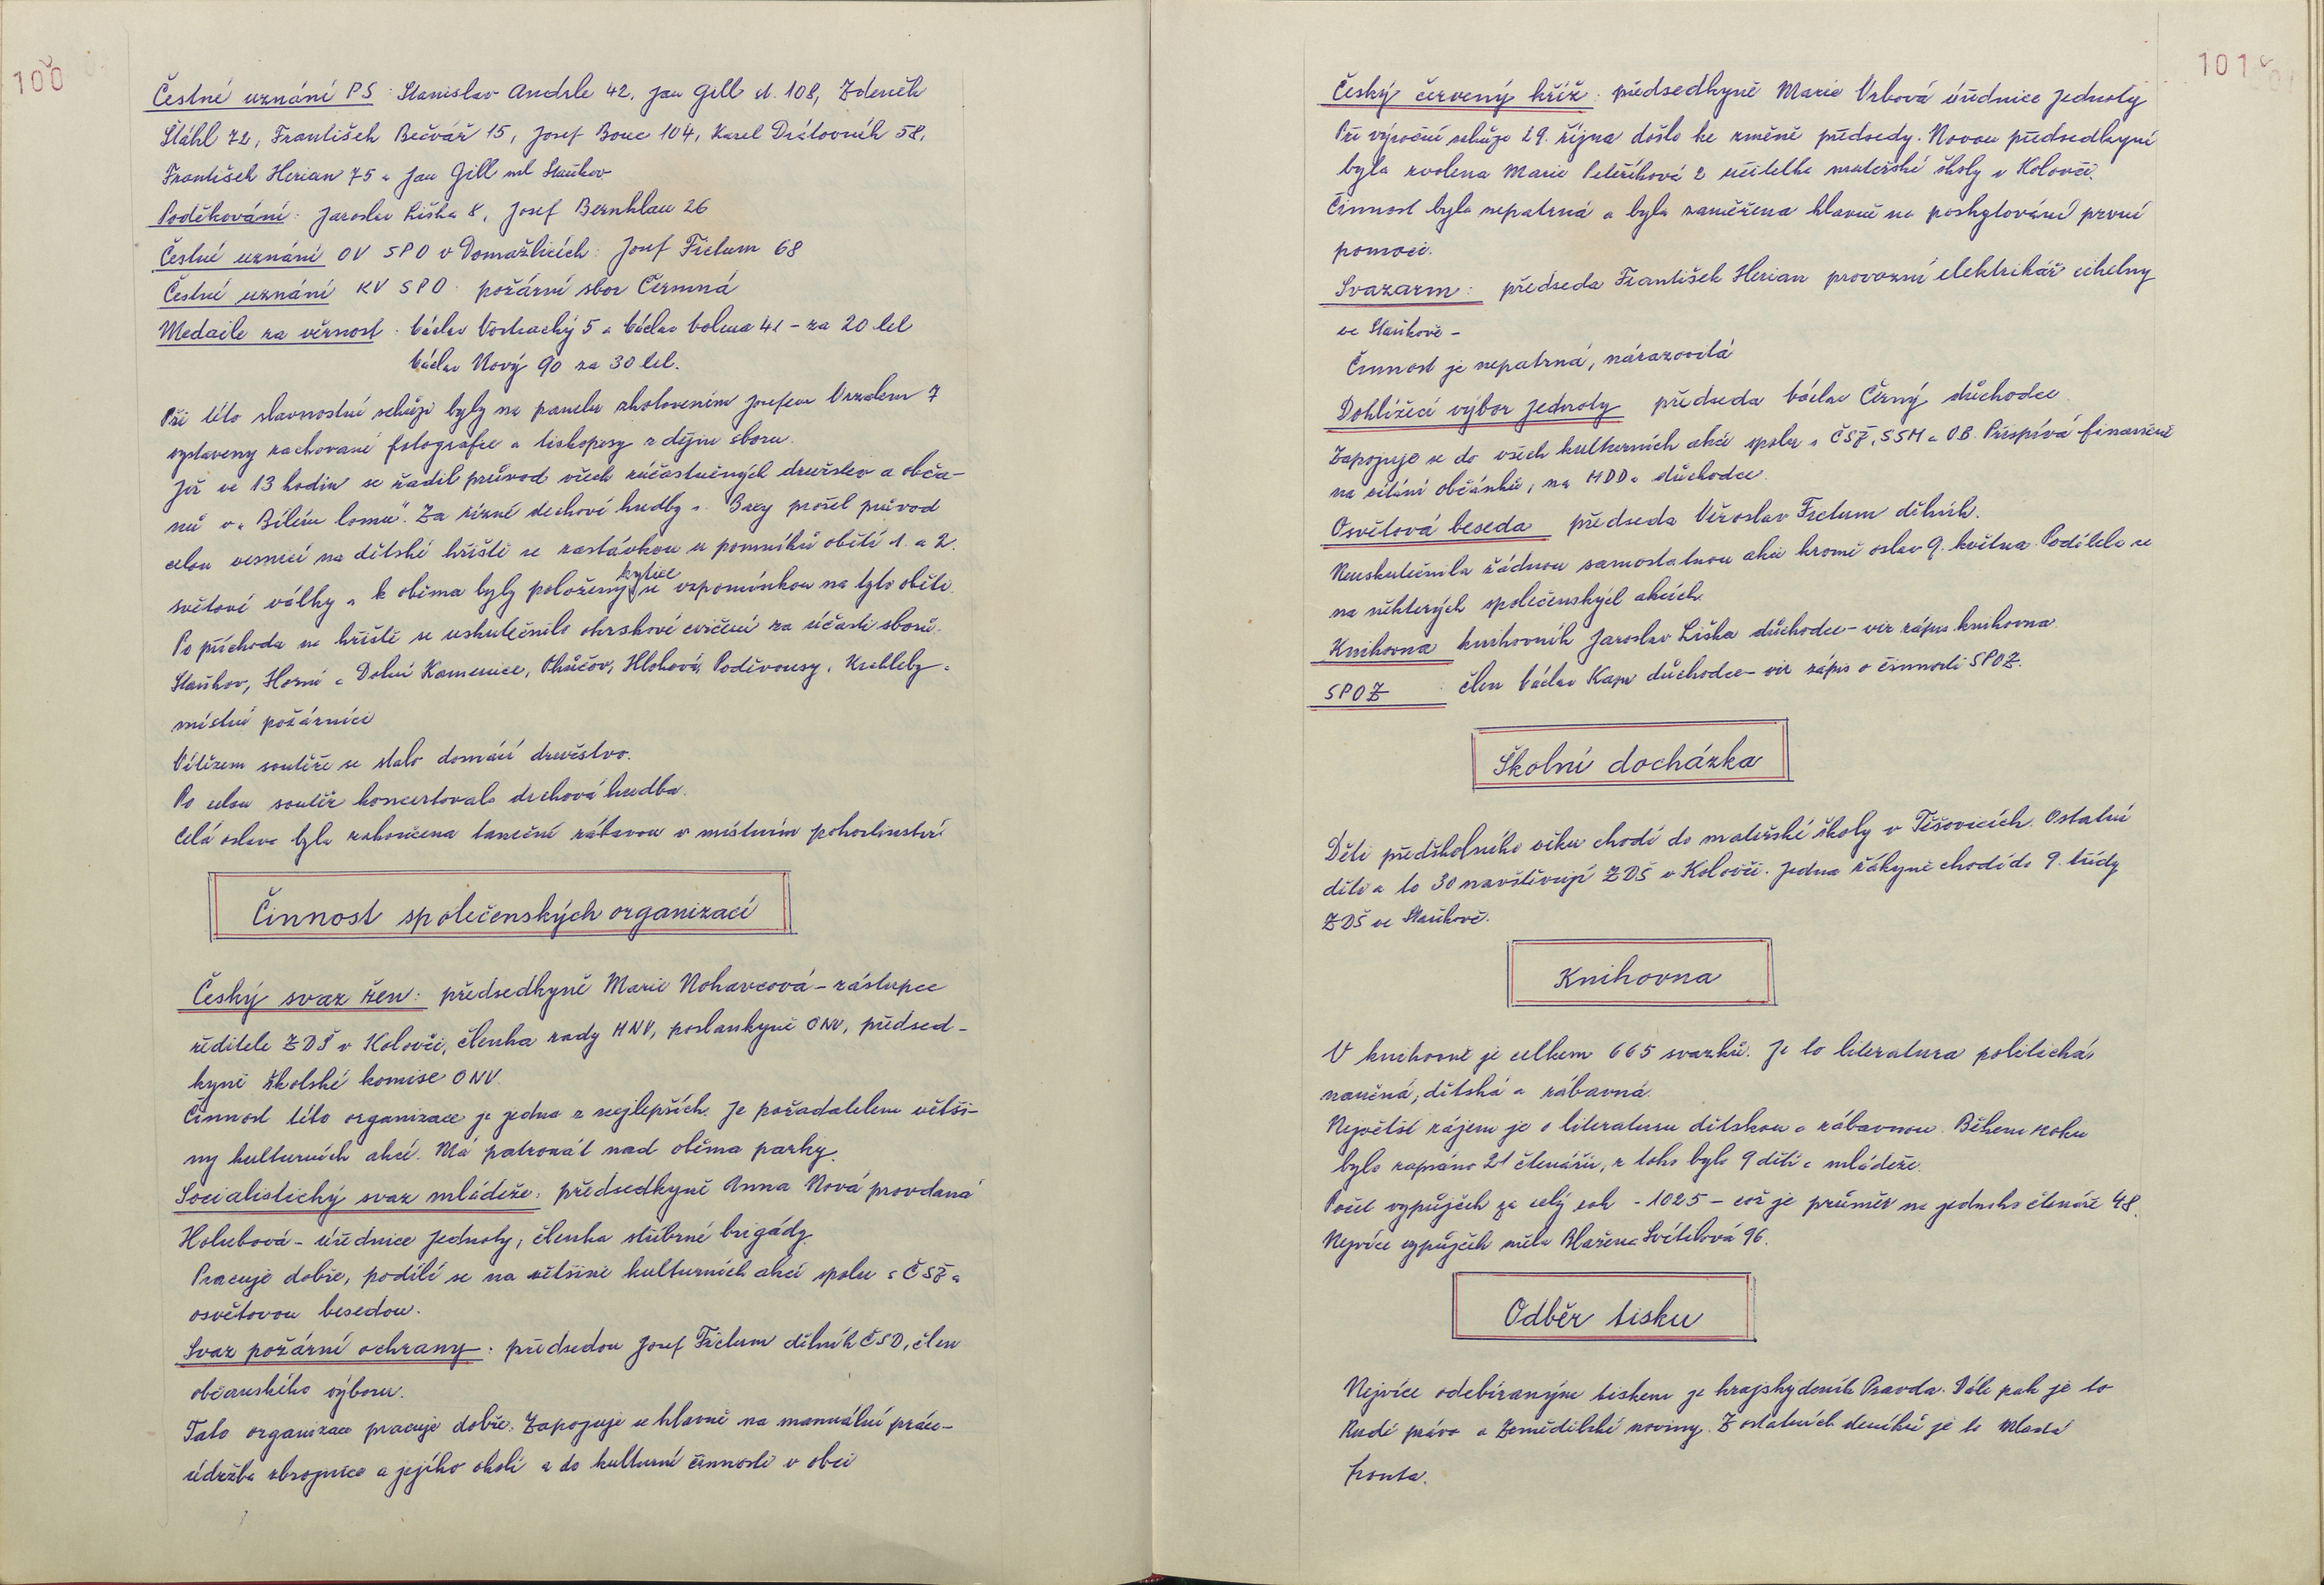 100
Čestné uznání PS: Stanislav Andrle 42, Jan Gill st. 108, Zdeněk
Štáhl 72, František Bečvář 15, Josef Bouc 104, Karel Drátovník 58,
František Herian 75 a Jan Gill ml Staňkov
Poděkování: Jaroslav Liška 8, Josef Bernklau 26
Čestné uznání OV SPO v Domažlicích: Josef Fictum 68
Čestné uznání KV SPO: požární sbor Čermná
Medaile za věrnost: Václav Vostracký 5 a Václav Volma 41 - za 20 let
Václav Nový 90 za 30 let.
Při této slavnostní schůzi byly na panelu zhotoveném Josefem Vrzalem 7
vystaveny zachované fotografie a tiskopisy z dějin sboru.
Již ve 13 hodin se řadil průvod všech zúčastněných družstev a obča-
nů v „Bílém lomu". Za řízné dechové hudby s. Baxy prošel průvod
celou vesnicí na dětské hřiště se zastávkou u pomníků obětí 1. a 2.
světové války a k oběma byly položeny kytice se vzpomínkou na tyto oběti.
Po příchodu na hřiště se uskutečnilo okrskové cvičení za účasti sborů:
Staňkov, Horní a Dolní Kamenice, Ohučov, Hlohová, Poděvousy, Krchleby a
místní požárníci
Vítězem soutěže se stalo domácí družstvo.
Po celou soutěž koncertovala dechová hudba.
Celá oslava byla zakončena taneční zábavou v místním pohostinství
Činnost společenských organizací
Český svaz žen: předsedkyně Marie Nohavcová - zástupce
ředitele ZDŠ v Kolovči, členka rady MNV, poslankyně ONV, předsed-
kyně školské komise ONV.
Činnost této organizace je jedna z nejlepších. Je pořadatelem větši-
ny kulturních akcí. Má patronát nad oběma parky.
Socialistický svaz mládeže: předsedkyně Anna Nová provdaná
Holubová - úřednice Jednoty, členka stříbrné brigády.
Pracuje dobře, podílí se na většině kulturních akcí spolu s ČSŽ a
osvětovou besedou.
Svaz požární ochrany: předsedou Josef Fictum dělník ČSD, člen
občanského výboru.
Tato organizace pracuje dobře. Zapojuje se hlavně na manuální práce -
údržba zbrojnice a jejího okolí a do kulturní činnosti v obci
101
Český červený kříž: předsedkyně Marie Vrbová úřednice Jednoty
Při výroční schůzi 29. října došlo ke změně předsedy. Novou předsedkyní
byla zvolena Marie Peteříková 2 učitelka mateřské školy v Kolovči.
Činnost byla nepatrná a byla zaměřena hlavně na poskytování první
pomoci.
Svazarm: předseda František Herian provozní elektrikář cihelny
ve Staňkově -
Činnost je nepatrná, nárazovitá
Dohlížecí výbor Jednoty předseda Václav Černý důchodce.
Zapojuje se do všech kulturních akcí spolu s ČSŽ, SSM a OB. Přispívá finančně
na vítání občánků, na MDD a důchodce.
Osvětová beseda předseda Věroslav Fictum dělník.
Neuskutečnila žádnou samostatnou akci kromě oslav 9. května. Podílela se
na některých společenských akcích.
Knihovna knihovník Jaroslav Liška důchodce - viz zápis knihovna.
SPOZ: člen Václav Kapr důchodce - viz zápis o činnosti SPOZ.
Školní docházka
Děti předškolního věku chodí do mateřské školy v Těšovicích. Ostatní
děti a to 30 navštěvují ZDŠ v Kolovči. Jedna žákyně chodí do 9. třídy
ZDŠ ve Staňkově.
Knihovna
V knihovně je celkem 665 svazků. Je to literatura politická,
naučná, dětská a zábavná.
Největší zájem je o literaturu dětskou a zábavnou. Během roku
bylo zapsáno 21 čtenářů, z toho bylo 9 dětí a mládeže.
Počet výpůjček za celý rok - 1025 - což je průměr na jednoho čtenáře 48.
Nejvíce výpůjček měla Blažena Světlíková 96.
Odběr tisku
Nejvíce odebíraným tiskem je krajský deník Pravda. Dále pak je to
Rudé právo a Zemědělské noviny. Z ostatních deníků je to Mladá
fronta.